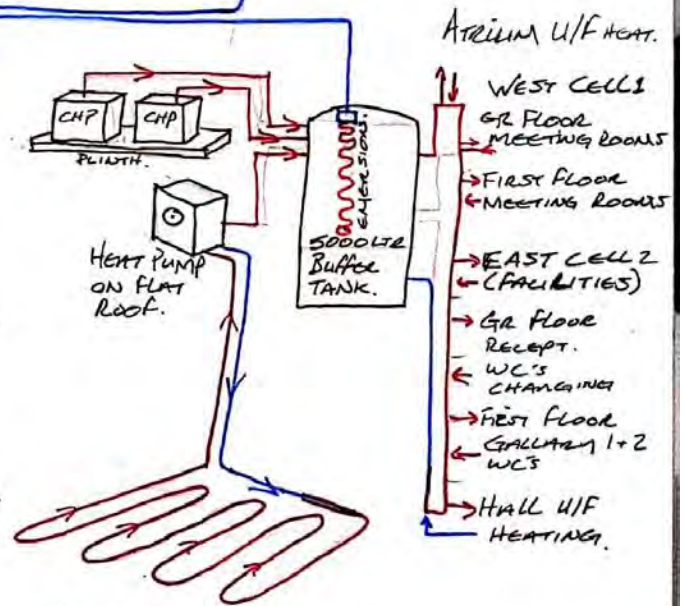 ATRIUM U/F HEAT.
WEST CELL 1
GR FLOOR
MEETING ROOMS
FIRST FLOOR
MEETING ROOMS
EAST CELL 2
(FACIRITIES)
GR FLOOR
RECEPT.
WC'S
CHANGING
FIRST FLOOR
GALLARY 1+2
WC'S
HALL U/F
HEATING.
CHP
CHP
PLINTH.
EMERSIONS.
5000LTR
BUFFER
TANK.
HEAT PUMP
ON FLAT
ROOF.